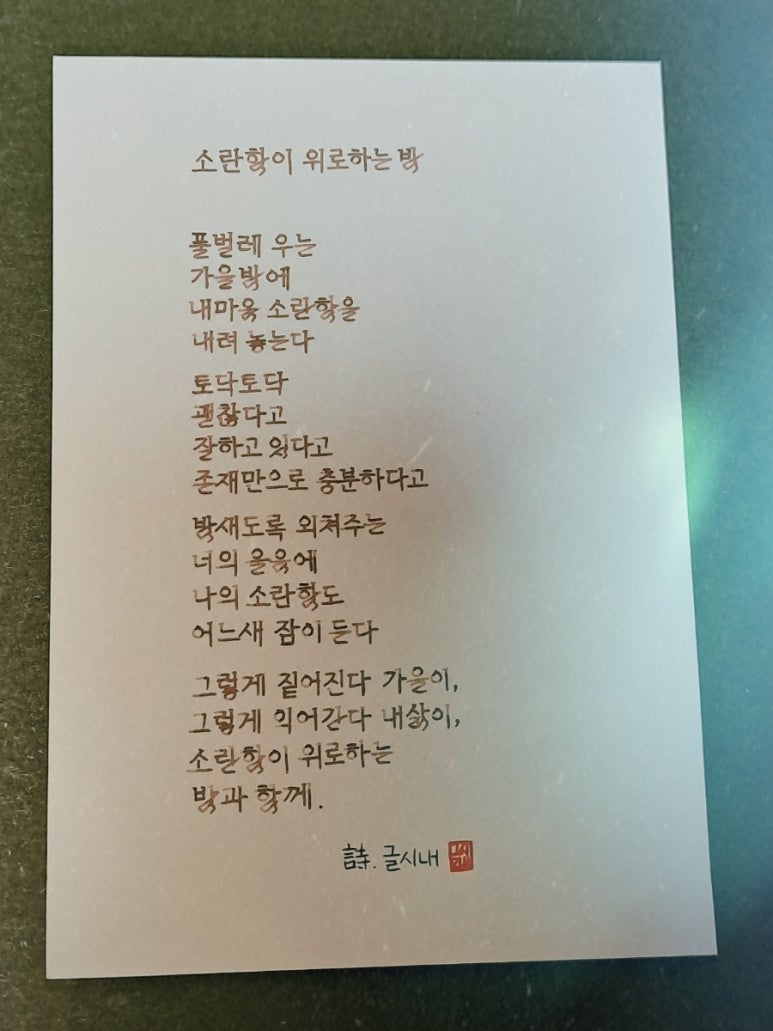 소란함이 위로하는 밤
풀벌레 우는
가을밤에
내마음 소란함을
내려 놓는다
토닥토닥
괜찮다고
잘하고 있다고
존재만으로 충분하다고
밤새도록 외쳐주는
너의 울음에
나의 소란함도
어느새 잠이 든다
그렇게 짙어진다 가을이,
그렇게 익어간다 내삶이,
소란함이 위로하는
밤과 함께.
詩. 글시내